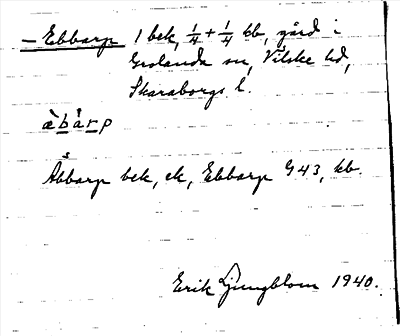 – Ebbarp 1 bek, ¼ + ¼ kb, gård i
Grolanda sn, Vilske hd,
Skaraborgs l.
æ̀bårp
Åbbarp bek, ek, Ebbarp G43, kb.
Erik Ljungblom 1940.